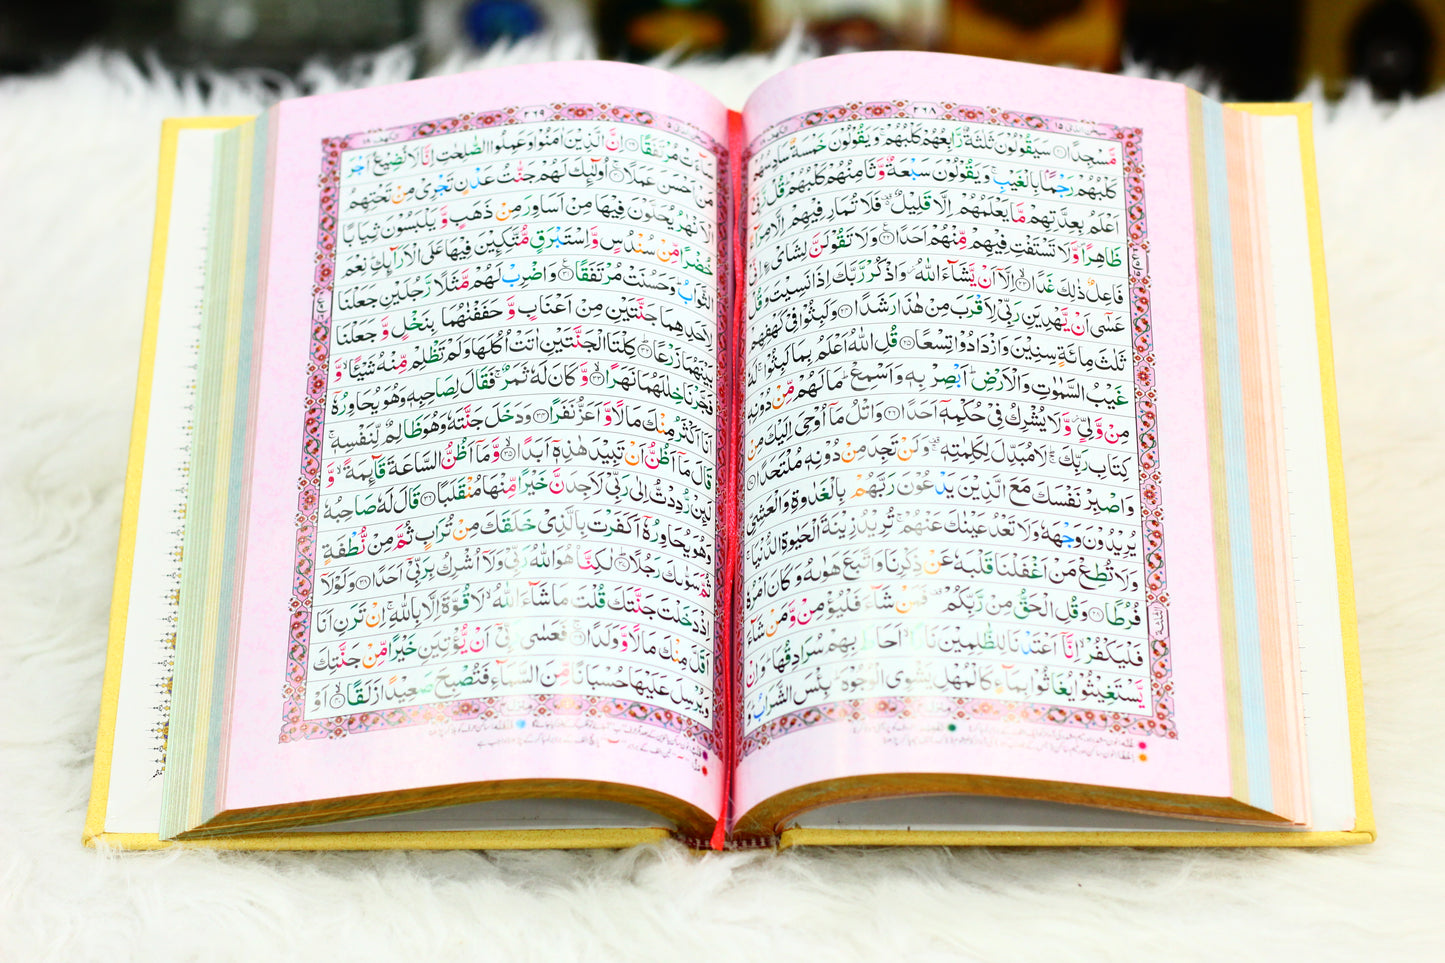 سبحن الذی ١٥
٢٦٨
مَّسْجِدًا ۝٢١ سَيَقُوْلُوْنَ ثَلٰثَةٌ رَّابِعُهُمْ كَلْبُهُمْ ۚ وَيَقُوْلُوْنَ خَمْسَةٌ سَادِسُهُمْ
كَلْبُهُمْ رَجْمًۢا بِالْغَيْبِ ۚ وَيَقُوْلُوْنَ سَبْعَةٌ وَّثَامِنُهُمْ كَلْبُهُمْ ؕ قُلْ رَّبِّیْۤ
اَعْلَمُ بِعِدَّتِهِمْ مَّا يَعْلَمُهُمْ اِلَّا قَلِيْلٌ ۫ فَلَا تُمَارِ فِيْهِمْ اِلَّا مِرَآءً
ظَاهِرًا ۪ وَّلَا تَسْتَفْتِ فِيْهِمْ مِّنْهُمْ اَحَدًا ۝٢٢ وَلَا تَقُوْلَنَّ لِشَایْءٍ اِنِّیْ
فَاعِلٌ ذٰلِكَ غَدًا ۝٢٣ اِلَّاۤ اَنْ يَّشَآءَ اللّٰهُ ؗ وَاذْكُرْ رَّبَّكَ اِذَا نَسِيْتَ وَقُلْ
عَسٰۤى اَنْ يَّهْدِيَنِ رَبِّیْ لِاَقْرَبَ مِنْ هٰذَا رَشَدًا ۝٢٤ وَلَبِثُوْا فِیْ كَهْفِهِمْ
ثَلٰثَ مِائَةٍ سِنِيْنَ وَازْدَادُوْا تِسْعًا ۝٢٥ قُلِ اللّٰهُ اَعْلَمُ بِمَا لَبِثُوْا ۚ لَهٗ
غَيْبُ السَّمٰوٰتِ وَالْاَرْضِ ؕ اَبْصِرْ بِهٖ وَاَسْمِعْ ؕ مَا لَهُمْ مِّنْ دُوْنِهٖ
مِنْ وَّلِیٍّ ؗ وَّلَا يُشْرِكُ فِیْ حُكْمِهٖۤ اَحَدًا ۝٢٦ وَاتْلُ مَاۤ اُوْحِیَ اِلَيْكَ مِنْ
كِتَابِ رَبِّكَ ؕۚ لَا مُبَدِّلَ لِكَلِمٰتِهٖ ۚ۫ وَلَنْ تَجِدَ مِنْ دُوْنِهٖ مُلْتَحَدًا ۝٢٧
وَاصْبِرْ نَفْسَكَ مَعَ الَّذِيْنَ يَدْعُوْنَ رَبَّهُمْ بِالْغَدٰوةِ وَالْعَشِیِّ
يُرِيْدُوْنَ وَجْهَهٗ وَلَا تَعْدُ عَيْنٰكَ عَنْهُمْ ۚ تُرِيْدُ زِيْنَةَ الْحَيٰوةِ الدُّنْيَا ۚ
وَلَا تُطِعْ مَنْ اَغْفَلْنَا قَلْبَهٗ عَنْ ذِكْرِنَا وَاتَّبَعَ هَوٰىهُ وَكَانَ اَمْرُهٗ
فُرُطًا ۝٢٨ وَقُلِ الْحَقُّ مِنْ رَّبِّكُمْ ۫ فَمَنْ شَآءَ فَلْيُؤْمِنْ وَّمَنْ شَآءَ
فَلْيَكْفُرْ ۙ اِنَّاۤ اَعْتَدْنَا لِلظّٰلِمِيْنَ نَارًا ۙ اَحَاطَ بِهِمْ سُرَادِقُهَا ؕ وَاِنْ
يَّسْتَغِيْثُوْا يُغَاثُوْا بِمَآءٍ كَالْمُهْلِ يَشْوِی الْوُجُوْهَ ؕ بِئْسَ الشَّرَابُ ؕ وَ
٢٦٩
سَآءَتْ مُرْتَفَقًا ۝٢٩ اِنَّ الَّذِيْنَ اٰمَنُوْا وَعَمِلُوا الصّٰلِحٰتِ اِنَّا لَا نُضِيْعُ اَجْرَ
مَنْ اَحْسَنَ عَمَلًا ۝٣٠ اُولٰٓئِكَ لَهُمْ جَنّٰتُ عَدْنٍ تَجْرِیْ مِنْ تَحْتِهِمُ
الْاَنْهٰرُ يُحَلَّوْنَ فِيْهَا مِنْ اَسَاوِرَ مِنْ ذَهَبٍ وَّيَلْبَسُوْنَ ثِيَابًا
خُضْرًا مِّنْ سُنْدُسٍ وَّاِسْتَبْرَقٍ مُّتَّكِئِيْنَ فِيْهَا عَلَى الْاَرَآئِكِ ؕ نِعْمَ
الثَّوَابُ ؕ وَحَسُنَتْ مُرْتَفَقًا ۝٣١ وَاضْرِبْ لَهُمْ مَّثَلًا رَّجُلَيْنِ جَعَلْنَا
لِاَحَدِهِمَا جَنَّتَيْنِ مِنْ اَعْنَابٍ وَّحَفَفْنٰهُمَا بِنَخْلٍ وَّجَعَلْنَا
بَيْنَهُمَا زَرْعًا ۝٣٢ كِلْتَا الْجَنَّتَيْنِ اٰتَتْ اُكُلَهَا وَلَمْ تَظْلِمْ مِّنْهُ شَيْئًا ۙ وَّ
فَجَّرْنَا خِلٰلَهُمَا نَهَرًا ۝٣٣ وَّكَانَ لَهٗ ثَمَرٌ ۚ فَقَالَ لِصَاحِبِهٖ وَهُوَ يُحَاوِرُهٗۤ
اَنَا اَكْثَرُ مِنْكَ مَالًا وَّاَعَزُّ نَفَرًا ۝٣٤ وَدَخَلَ جَنَّتَهٗ وَهُوَ ظَالِمٌ لِّنَفْسِهٖ ۚ
قَالَ مَاۤ اَظُنُّ اَنْ تَبِيْدَ هٰذِهٖۤ اَبَدًا ۝٣٥ وَّمَاۤ اَظُنُّ السَّاعَةَ قَآئِمَةً ۙ وَّ
لَئِنْ رُّدِدْتُّ اِلٰى رَبِّیْ لَاَجِدَنَّ خَيْرًا مِّنْهَا مُنْقَلَبًا ۝٣٦ قَالَ لَهٗ صَاحِبُهٗ
وَهُوَ يُحَاوِرُهٗۤ اَكَفَرْتَ بِالَّذِیْ خَلَقَكَ مِنْ تُرَابٍ ثُمَّ مِنْ نُّطْفَةٍ
ثُمَّ سَوّٰىكَ رَجُلًا ۝٣٧ لٰكِنَّا۠ هُوَ اللّٰهُ رَبِّیْ وَلَاۤ اُشْرِكُ بِرَبِّیْۤ اَحَدًا ۝٣٨ وَلَوْلَاۤ
اِذْ دَخَلْتَ جَنَّتَكَ قُلْتَ مَا شَآءَ اللّٰهُ ۙ لَا قُوَّةَ اِلَّا بِاللّٰهِ ۚ اِنْ تَرَنِ اَنَا
اَقَلَّ مِنْكَ مَالًا وَّوَلَدًا ۝٣٩ فَعَسٰى رَبِّیْۤ اَنْ يُّؤْتِيَنِ خَيْرًا مِّنْ جَنَّتِكَ
وَيُرْسِلَ عَلَيْهَا حُسْبَانًا مِّنَ السَّمَآءِ فَتُصْبِحَ صَعِيْدًا زَلَقًا ۝٤٠ اَوْ